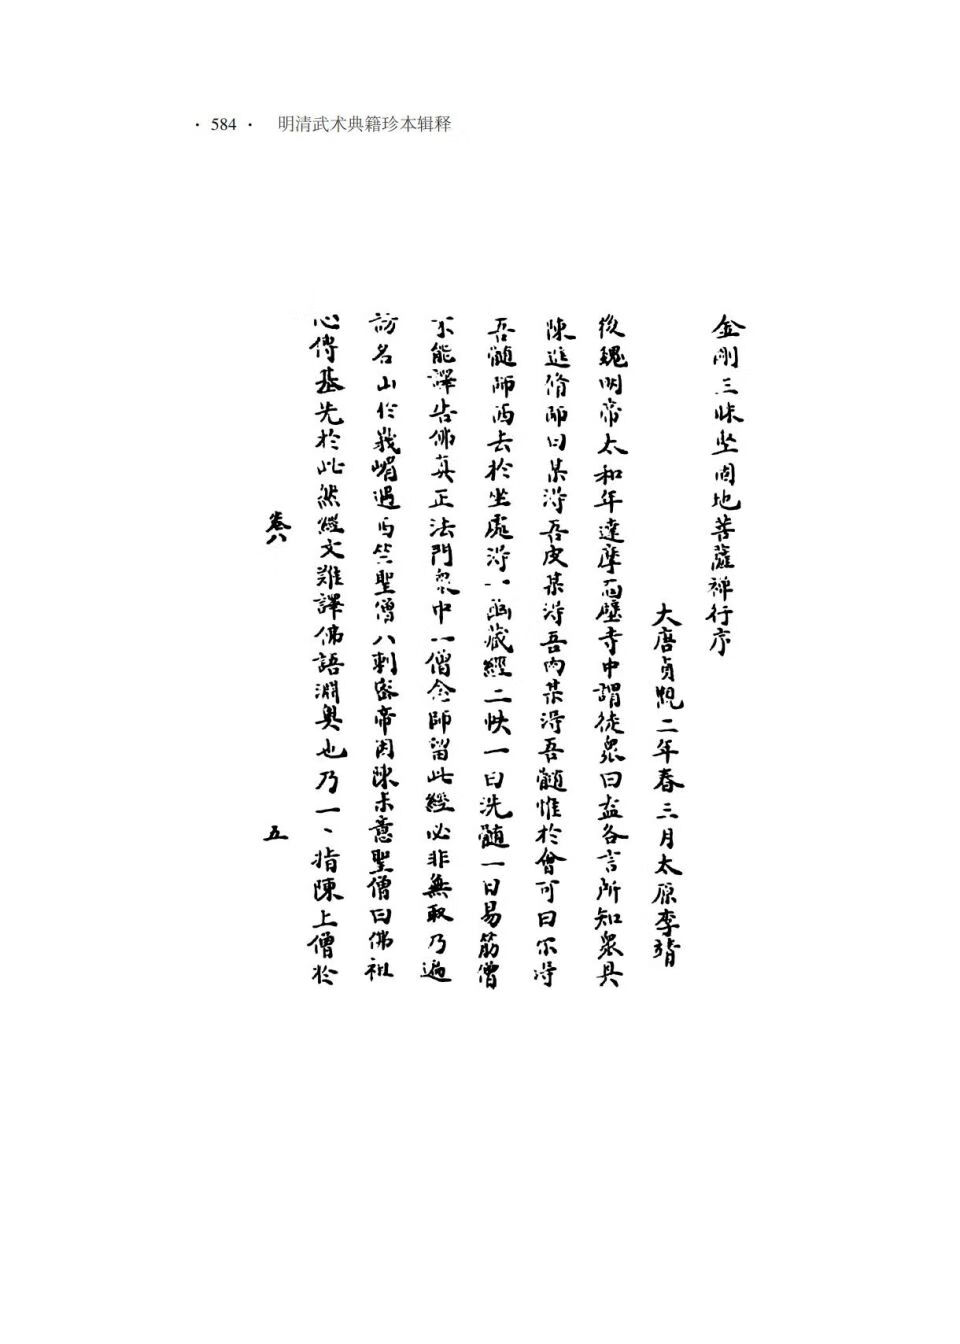 · 584 · 明清武术典籍珍本辑释
金剛三昧坐固地菩薩禅行序
大唐貞觀二年春三月太原李靖
後魏明帝太和年達摩面壁寺中謂徒衆曰盍各言所知衆具
陳進脩師曰某得吾皮某得吾肉某得吾髓惟於會可曰尔得
吾髓師西去於坐處得一函藏經二帙一曰洗髓一曰易筋僧
不能譯告佛真正法門衆中一僧念師留此經必非無取乃遍
訪名山於峩嵋遇西竺聖僧八剌密帝因陳未意聖僧曰佛祖
心傳基先於此然經文難譯佛語淵奥也乃一、指陳上僧於
卷八
五